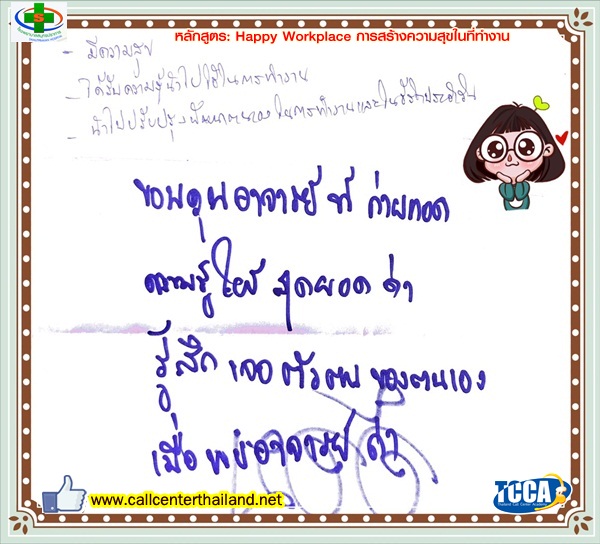 หลักสูตร: Happy Workplace การสร้างความสุขในที่ทำงาน
- มีความสุข
- ได้รับความรู้นำไปใช้ในการทำงาน
- นำไปปรับปรุงพัฒนาตนเองในการทำงานและในชีวิตประจำวัน
ขอบคุณอาจารย์ที่ถ่ายทอด
ความรู้ให้ สุดยอดค่ะ
รู้สึกเจอตัวตนของตนเอง
เมื่อพบอาจารย์ค่ะ
www.callcenterthailand.net
TCCA